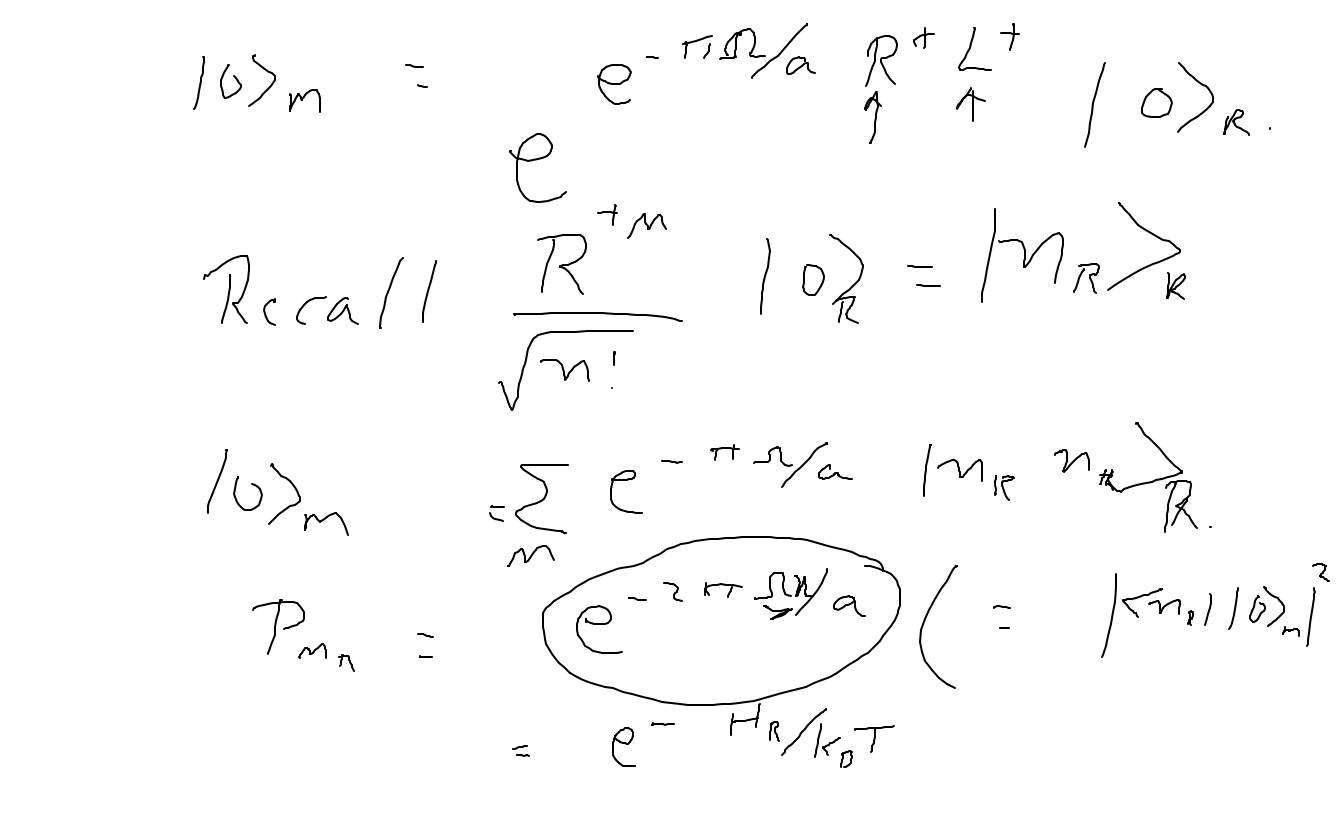 |0⟩_M = e^{e^{-πΩ/a} R^+ L^+} |0⟩_R.
↑ ↑
Recall R^{+n}/√n! |0⟩_R = |n_R⟩_R
|0⟩_M = Σ_n e^{-πΩ/a} |n_R n_R⟩_R.
P_{nn} = e^{-2πΩn/a} ( = |⟨n_R| |0⟩_M|^2
= e^{-H_R/k_BT}